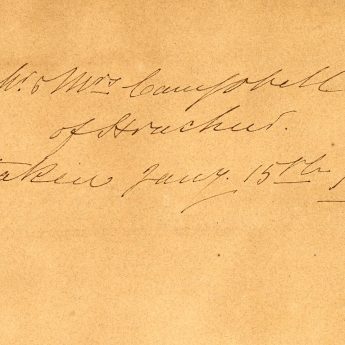 Mr & Mrs Campbell
of Strachur.
taken Jany. 15th